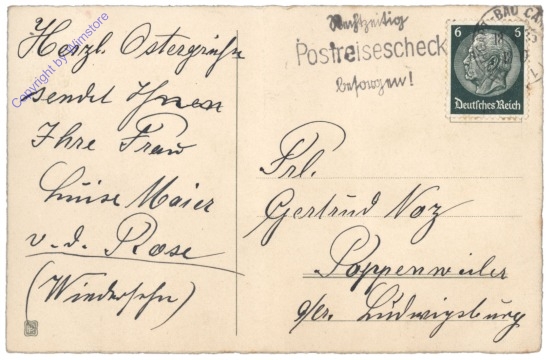 Herzl. Ostergrüße
sendet Ihnen
Ihre Frau
Luise Maier
v. d. Rose
(Wiedersehn)
Copyright by filmstore
Rechtzeitig
Postreisescheck
besorgen!
6 6
Deutsches Reich
Frl.
Gertrud Noz
Poppenweiler
b/r. Ludwigsburg